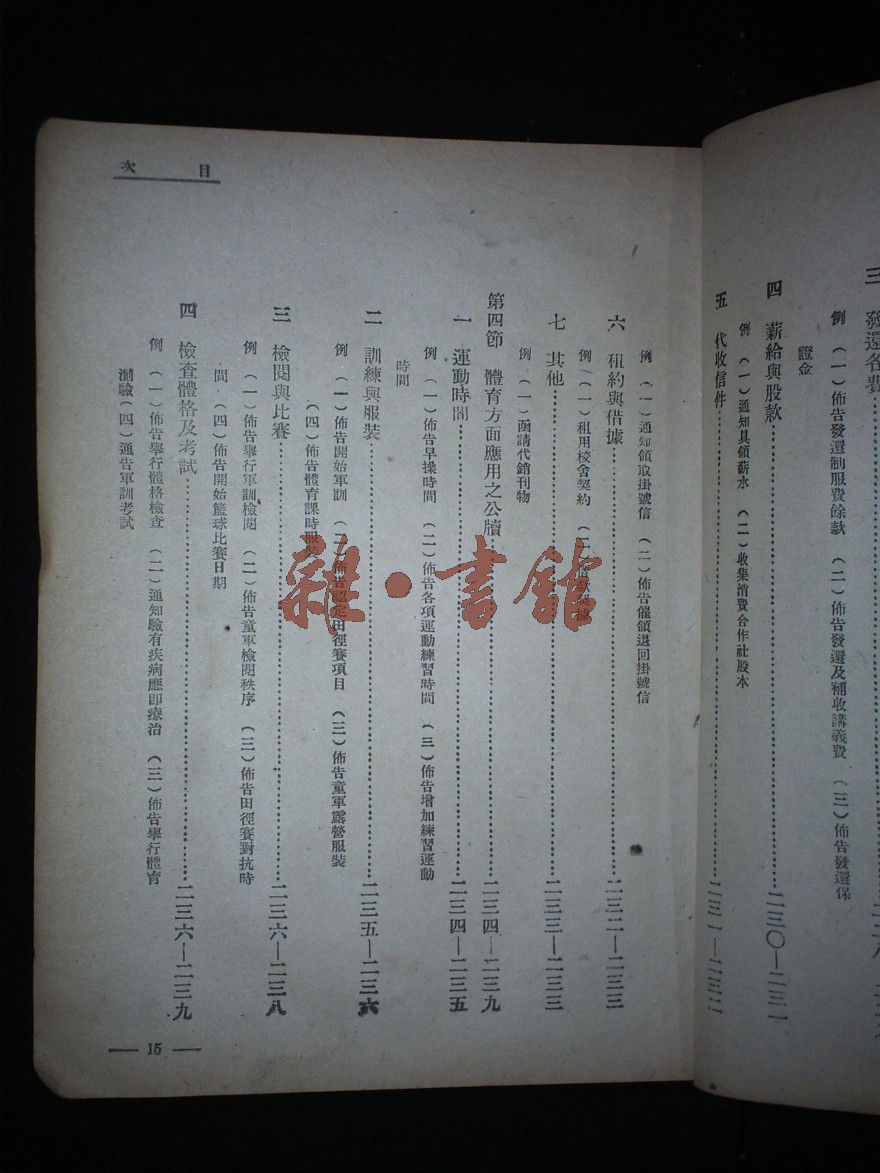 三 發還各費
例 (一)佈告發還制服費餘款 (二)佈告發還及補收講義費 (三)佈告發還保
證金
四 薪給與股款……二三〇—二三一
例 (一)通知具領薪水 (二)收集消費合作社股本
五 代收信件……二三一—二三二
例 (一)通知領取掛號信 (二)佈告催領退回掛號信
六 租約與借據……二三二—二三三
例 (一)租用校舍契約
七 其他……二三三—二三三
例 (一)函請代銷刊物
第四節 體育方面應用之公牘……二三四—二三九
一 運動時間……二三四—二三五
例 (一)佈告早操時間 (二)佈告各項運動練習時間 (三)佈告增加練習運動
時間
二 訓練與服裝……二三五—二三六
例 (一)佈告開始軍訓 (二)佈告認定田徑賽項目 (三)佈告童軍露營服裝
(四)佈告體育課時服裝
三 檢閱與比賽……二三六—二三八
例 (一)佈告舉行軍訓檢閱 (二)佈告童軍檢閱秩序 (三)佈告田徑賽對抗時
間 (四)佈告開始籃球比賽日期
四 檢查體格及考試……二三六—二三九
例 (一)佈告舉行體格檢查 (二)通知驗有疾病應即療治 (三)佈告舉行體育
測驗 (四)通告軍訓考試
目 次
— 15 —
雜·書館